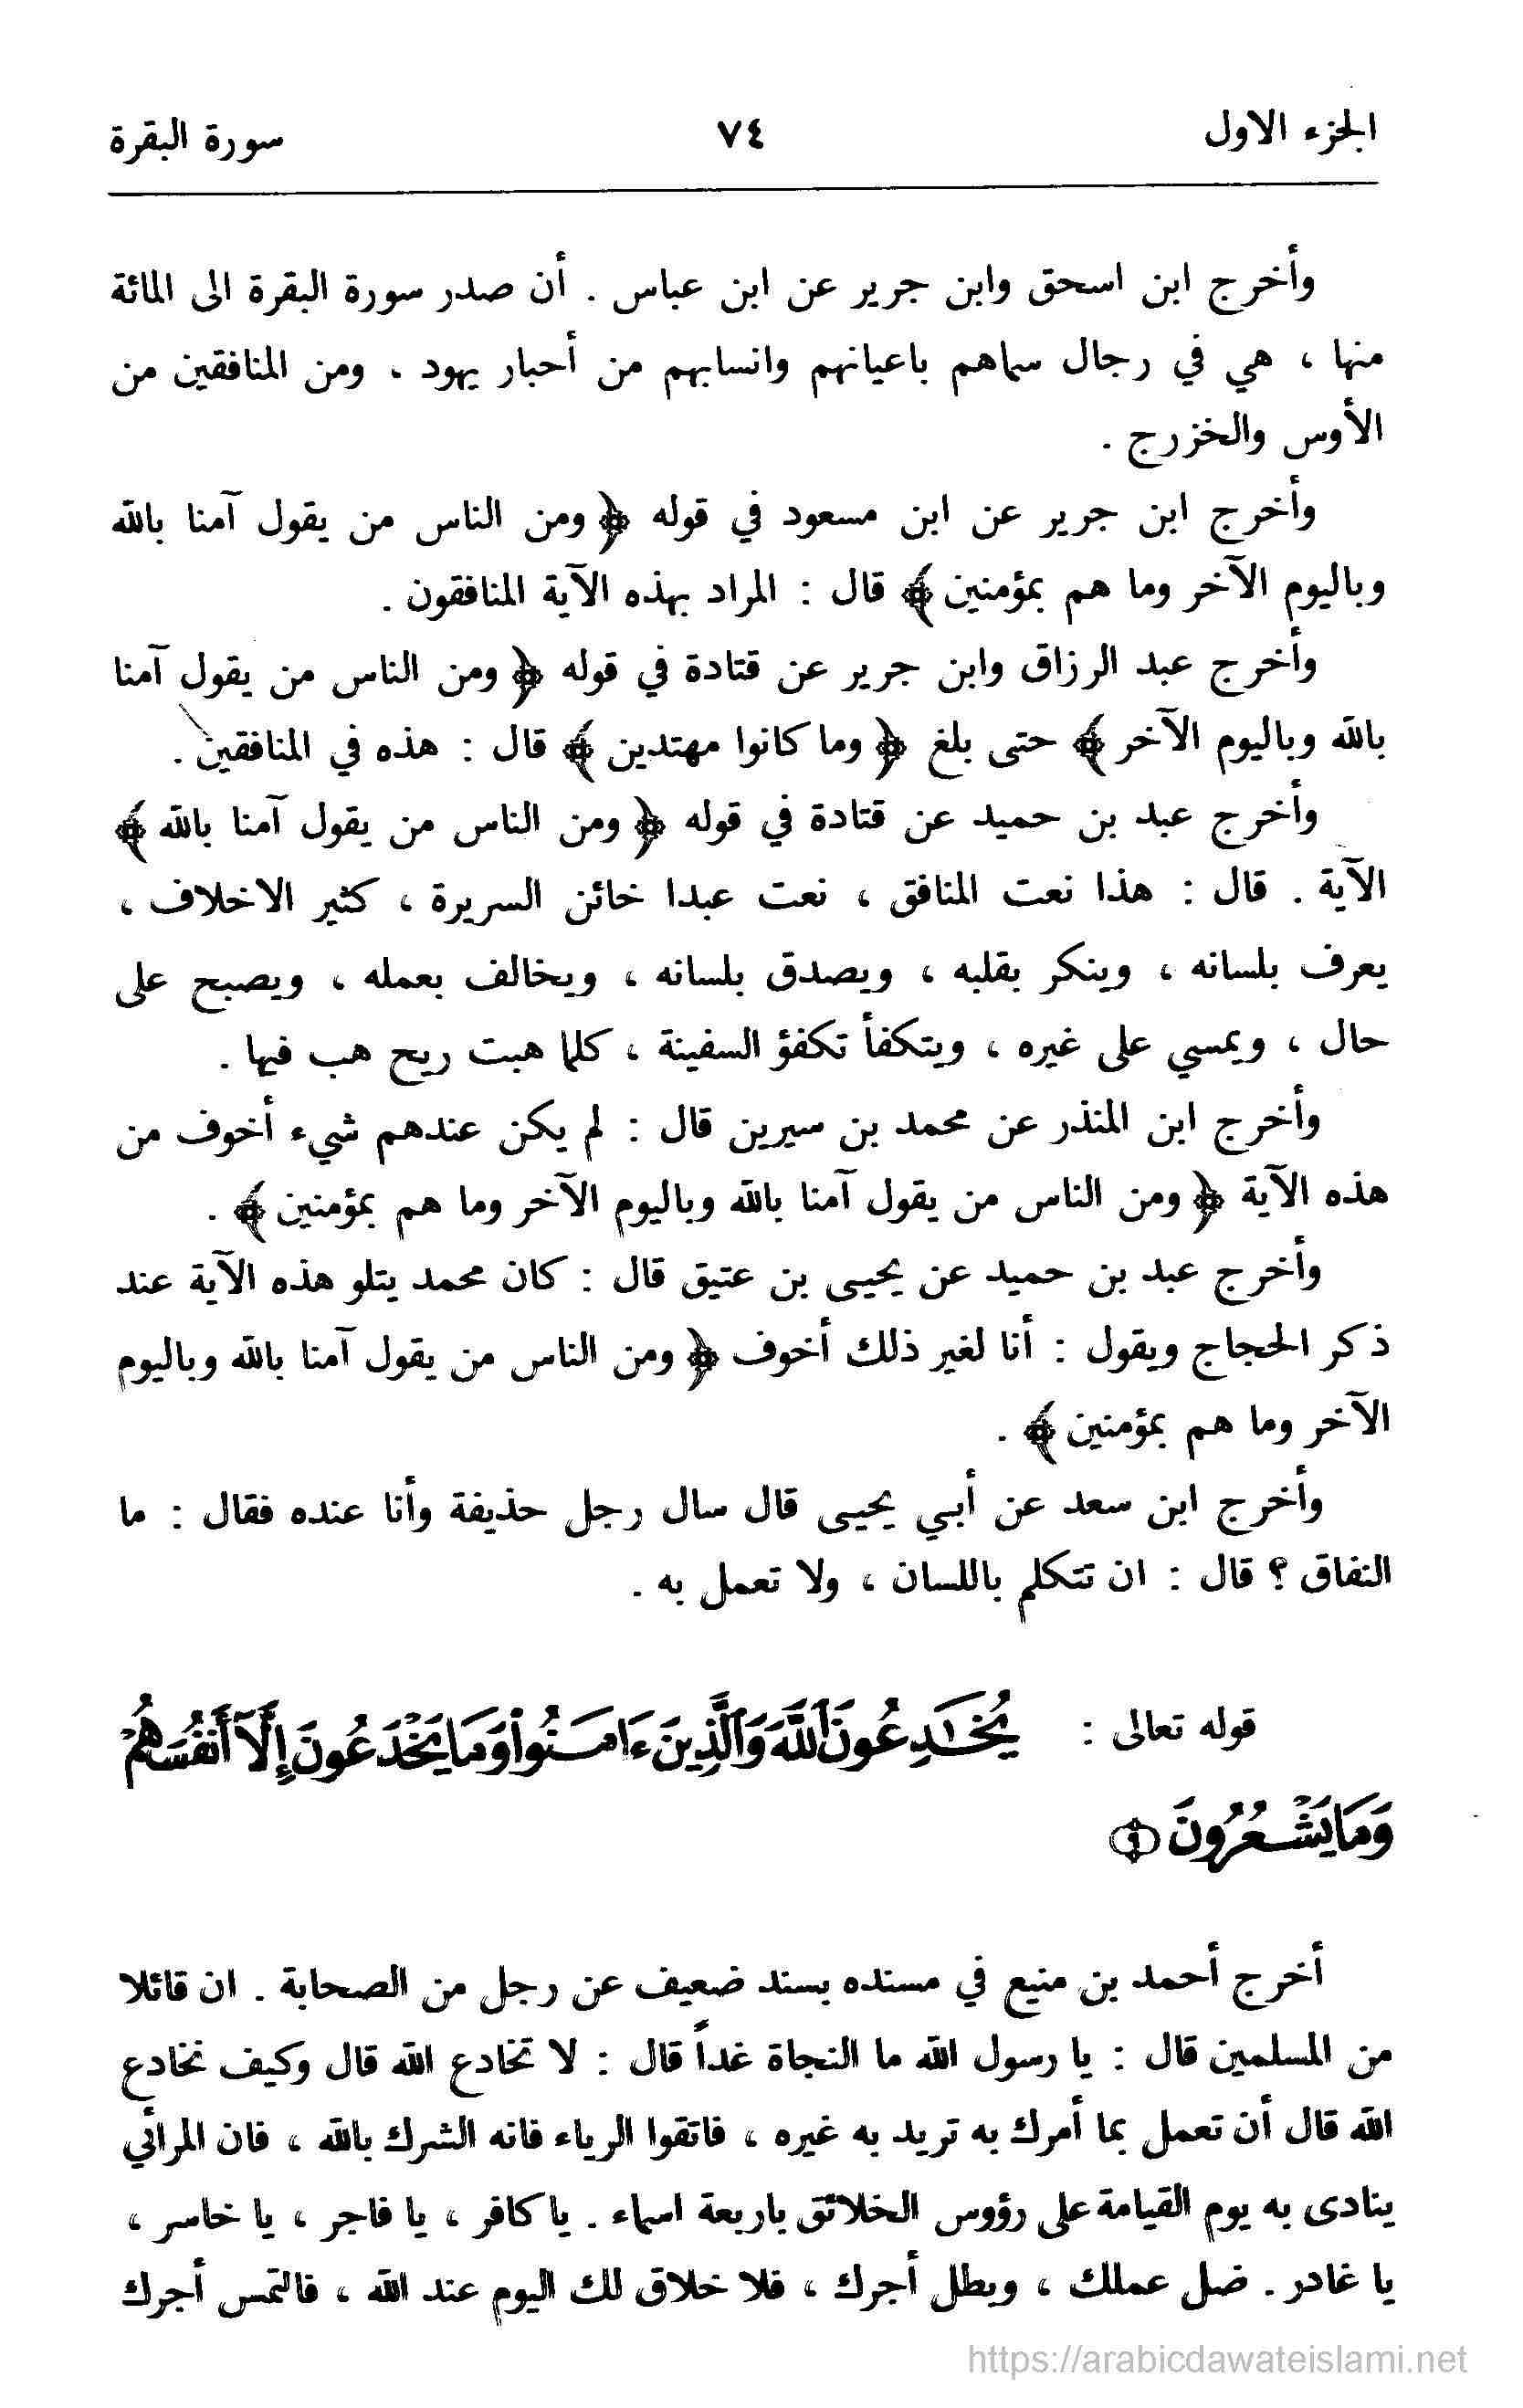 الجزء الاول ٧٤ سورة البقرة
وأخرج ابن اسحق وابن جرير عن ابن عباس . أن صدر سورة البقرة الى المائة
منها ، هي في رجال سماهم باعيانهم وانسابهم من أحبار يهود ، ومن المنافقين من
الأوس والخزرج .
وأخرج ابن جرير عن ابن مسعود في قوله ﴿ ومن الناس من يقول آمنا بالله
وباليوم الآخر وما هم بمؤمنين ﴾ قال : المراد بهذه الآية المنافقون .
وأخرج عبد الرزاق وابن جرير عن قتادة في قوله ﴿ ومن الناس من يقول آمنا
بالله وباليوم الآخر ﴾ حتى بلغ ﴿ وما كانوا مهتدين ﴾ قال : هذه في المنافقين .
وأخرج عبد بن حميد عن قتادة في قوله ﴿ ومن الناس من يقول آمنا بالله ﴾
الآية . قال : هذا نعت المنافق ، نعت عبدا خائن السريرة ، كثير الاخلاف ،
يعرف بلسانه ، وينكر بقلبه ، ويصدق بلسانه ، ويخالف بعمله ، ويصبح على
حال ، ويمسي على غيره ، ويتكفأ تكفؤ السفينة ، كلما هبت ريح هب فيها .
وأخرج ابن المنذر عن محمد بن سيرين قال : لم يكن عندهم شيء أخوف من
هذه الآية ﴿ ومن الناس من يقول آمنا بالله وباليوم الآخر وما هم بمؤمنين ﴾ .
وأخرج عبد بن حميد عن يحيى بن عتيق قال : كان محمد يتلو هذه الآية عند
ذكر الحجاج ويقول : أنا لغير ذلك أخوف ﴿ ومن الناس من يقول آمنا بالله وباليوم
الآخر وما هم بمؤمنين ﴾ .
وأخرج ابن سعد عن أبي يحيى قال سال رجل حذيفة وأنا عنده فقال : ما
النفاق ؟ قال : ان تتكلم باللسان ، ولا تعمل به .
قوله تعالى : يُخَٰدِعُونَ ٱللَّهَ وَٱلَّذِينَ ءَامَنُوا۟ وَمَا يَخْدَعُونَ إِلَّآ أَنفُسَهُمْ
وَمَا يَشْعُرُونَ ٩
أخرج أحمد بن منيع في مسنده بسند ضعيف عن رجل من الصحابة . ان قائلا
من المسلمين قال : يا رسول الله ما النجاة غداً قال : لا تخادع الله قال وكيف نخادع
الله قال أن تعمل بما أمرك به تريد به غيره ، فاتقوا الرياء فانه الشرك بالله ، فان المرائي
ينادى به يوم القيامة على رؤوس الخلائق باربعة اسماء . يا كافر ، يا فاجر ، يا خاسر ،
يا غادر . ضل عملك ، وبطل أجرك ، فلا خلاق لك اليوم عند الله ، فالتمس أجرك
https://arabicdawateislami.net